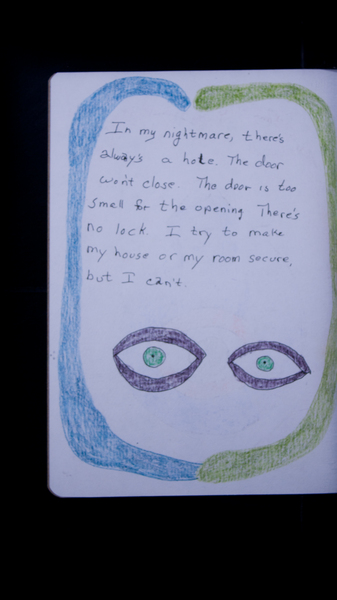 In my nightmare, there's
always a hole. The door
won't close. The door is too
smell for the opening There's
no lock. I try to make
my house or my room secure,
but I can't.